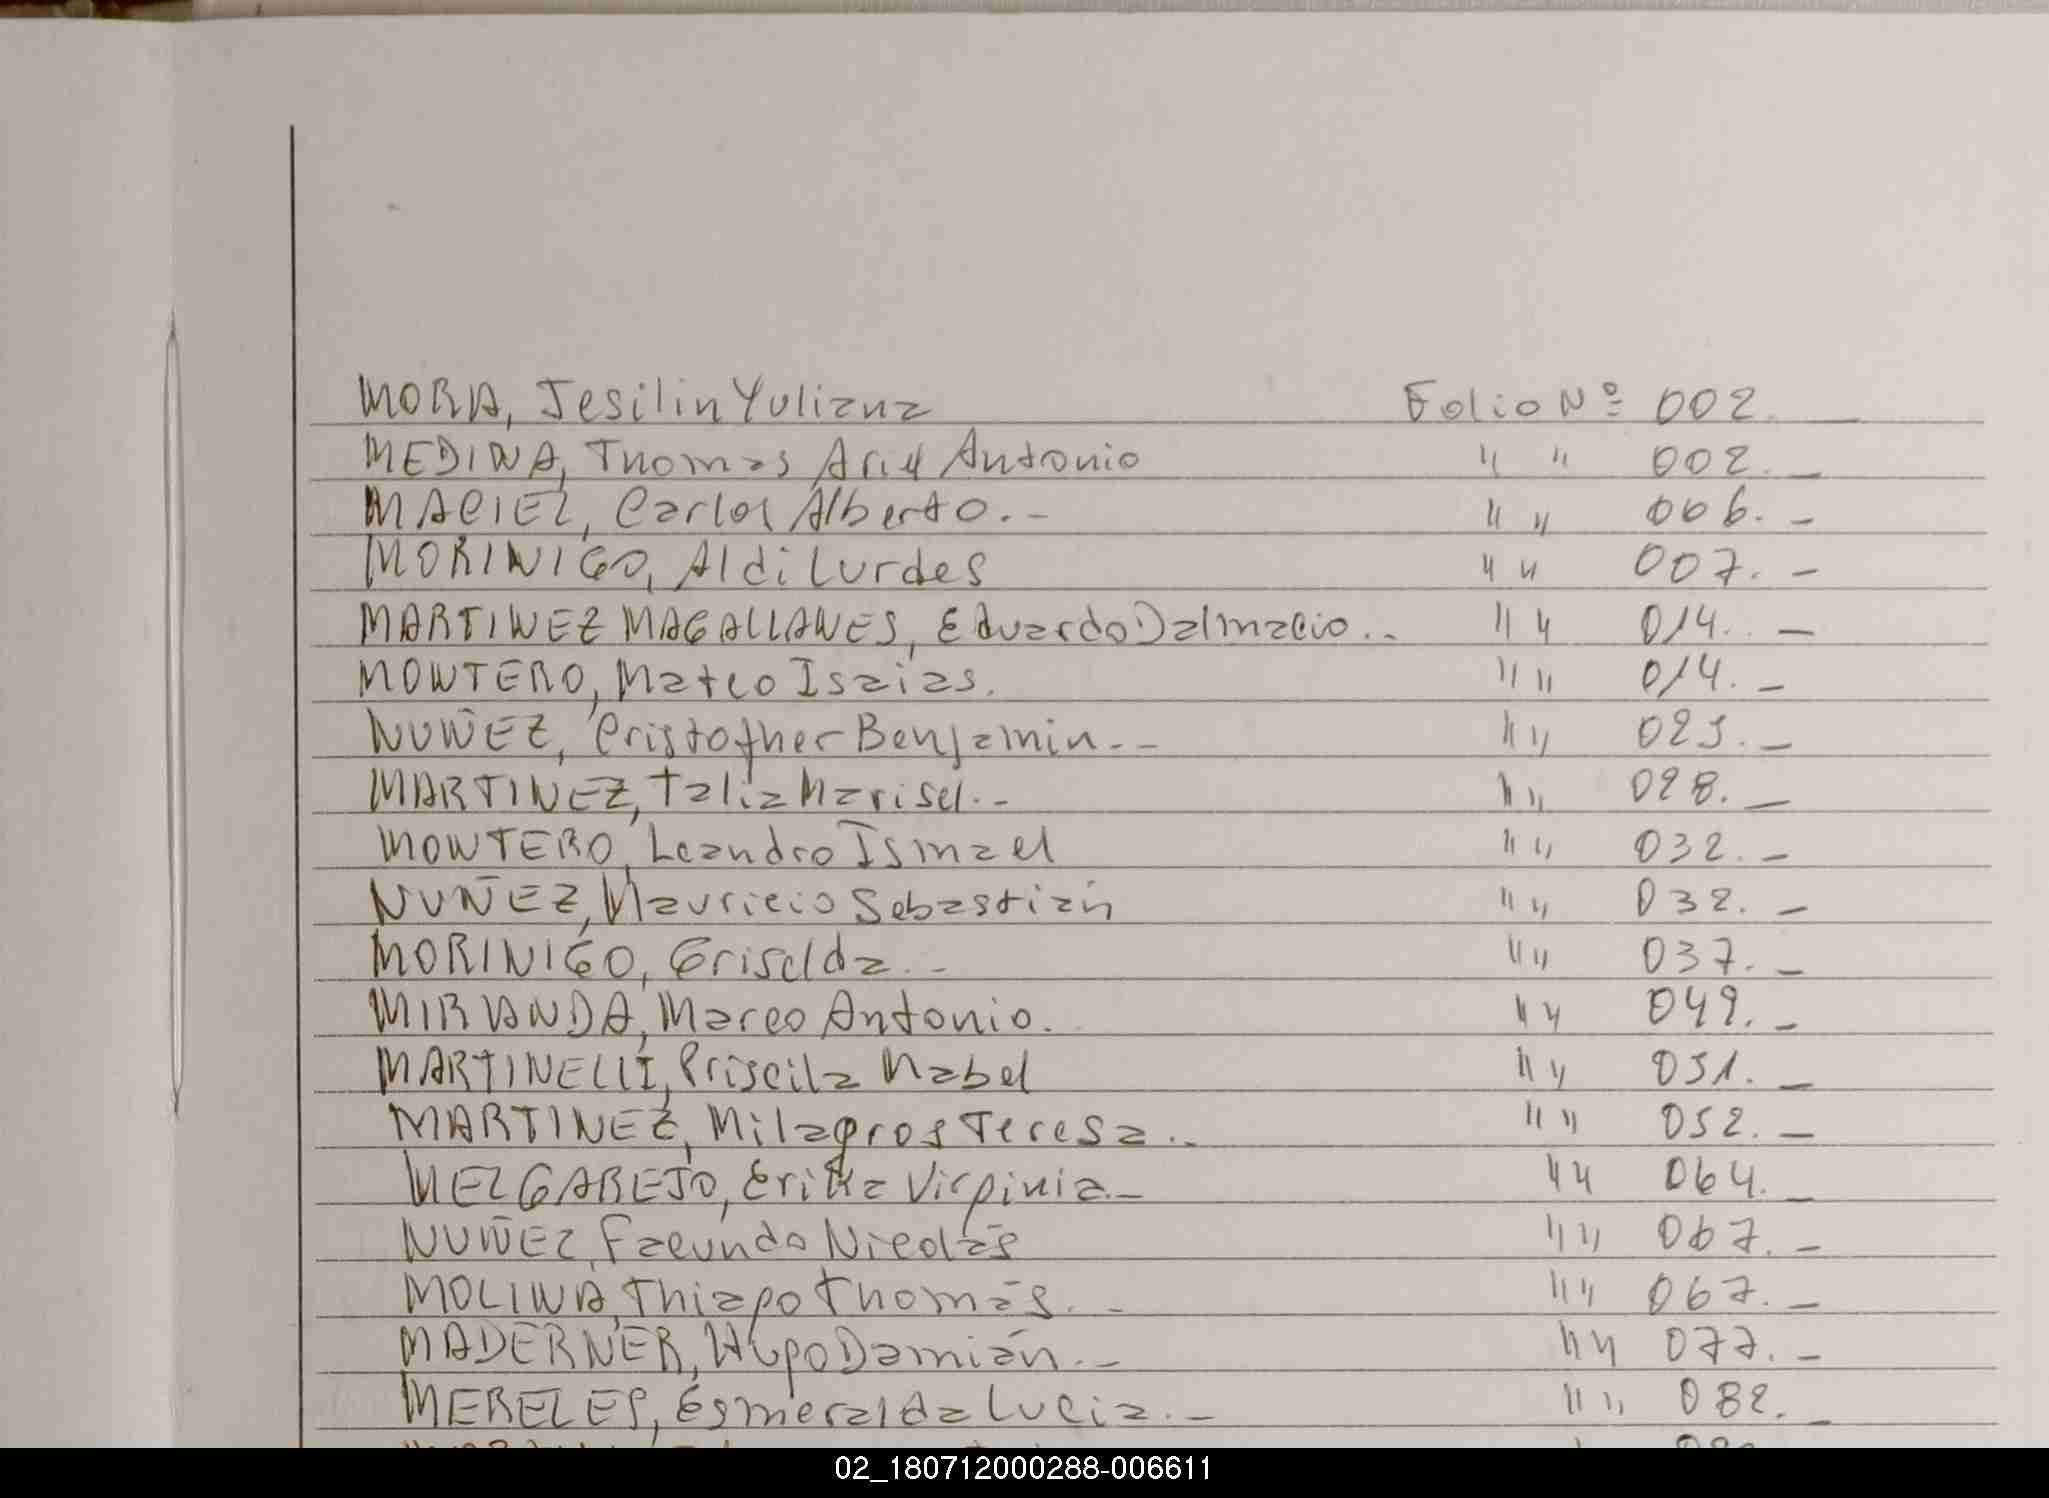 MORA, Jesilin Yuliana Folio Nº 002.
MEDINA, Thomas Ariel Antonio " " 002. _
MACIEL, Carlos Alberto. - " " 006. -
MORINIGO, Aldi Lurdes " " 007. -
MARTINEZ MAGALLANES, Eduardo Dalmacio. . " " 014. . -
MONTERO, Mateo Isaias. " " 014. -
NUÑEZ, Cristofher Benjamin. - - " " 025. -
MARTINEZ, Talia Marisel. . - " " 028. _
MONTERO, Leandro Ismael " " 032. -
NUÑEZ, Mauricio Sebastián " " 032. -
MORINIGO, Griselda. . - " " 037. -
MIRANDA, Marco Antonio. " " 049. -
MARTINELLI, Priscila Mabel " " 051. _
MARTINEZ, Milagros Teresa. . " " 052. _
MELGAREJO, Erika Virginia. _ " " 064. _
NUÑEZ, Facundo Nicolás " " 067. -
MOLINA, Thiago Thomás. . - " " 067. _
MADERNER, Hugo Damián. . - " " 077. -
MERELES, Esmeralda Lucia. - " " 082. _
02_180712000288-006611